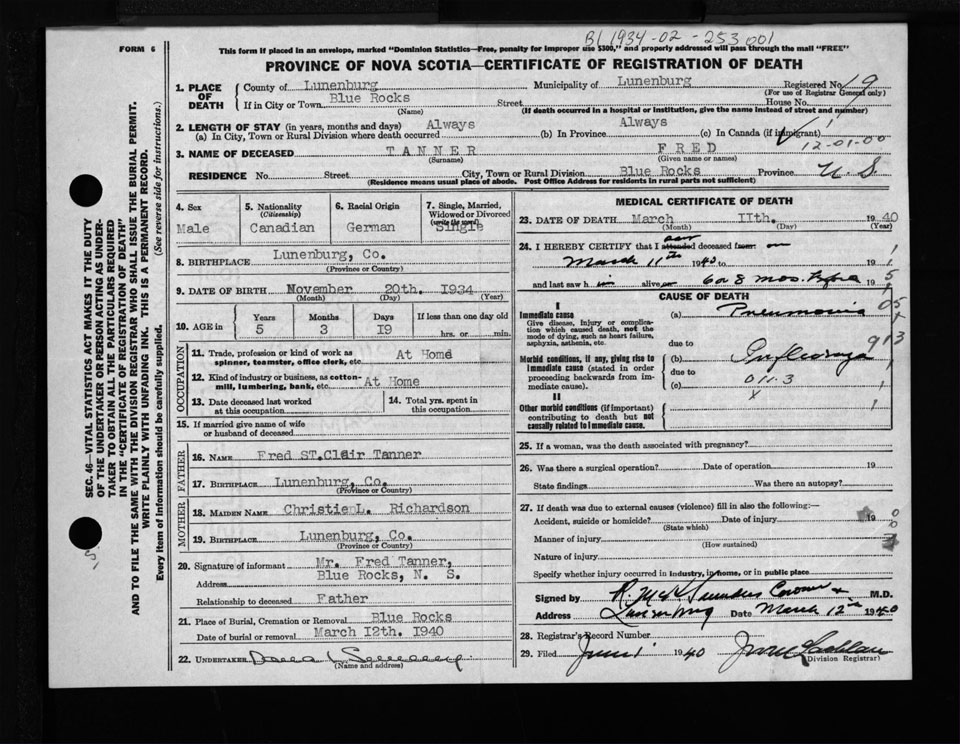 B1 1934-02-253001
FORM 6
This form if placed in an envelope, marked "Dominion Statistics—Free, penalty for improper use $300," and properly addressed will pass through the mail "FREE"
PROVINCE OF NOVA SCOTIA—CERTIFICATE OF REGISTRATION OF DEATH
SEC. 46—VITAL STATISTICS ACT MAKES IT THE DUTY
OF THE UNDERTAKER OR PERSON ACTING AS UNDER-
TAKER TO OBTAIN ALL THE PARTICULARS REQUIRED
IN THE "CERTIFICATE OF REGISTRATION OF DEATH"
AND TO FILE THE SAME WITH THE DIVISION REGISTRAR WHO SHALL ISSUE THE BURIAL PERMIT.
WRITE PLAINLY WITH UNFADING INK. THIS IS A PERMANENT RECORD.
Every item of information should be carefully supplied. (See reverse side for instructions.)
1. PLACE OF DEATH
County of Lunenburg Municipality of Lunenburg Registered No. 19
(For use of Registrar General only)
If in City or Town Blue Rocks Street House No.
(Name) (If death occurred in a hospital or institution, give the name instead of street and number)
2. LENGTH OF STAY (in years, months and days) Always Always
(a) In City, Town or Rural Division where death occurred (b) In Province (c) In Canada (if immigrant)
12-01-00
3. NAME OF DECEASED TANNER FRED
(Surname) (Given name or names)
RESIDENCE No. Street City, Town or Rural Division Blue Rocks Province N. S.
(Residence means usual place of abode. Post Office Address for residents in rural parts not sufficient)
4. Sex
Male
5. Nationality
(Citizenship)
Canadian
6. Racial Origin
German
7. Single, Married,
Widowed or Divorced
(write the word)
Single
8. BIRTHPLACE Lunenburg, Co.
(Province or Country)
9. DATE OF BIRTH November 20th. 1934
(Month) (Day) (Year)
10. AGE in
Years Months Days If less than one day old
5 3 I9 hrs. or min.
OCCUPATION
11. Trade, profession or kind of work as
spinner, teamster, office clerk, etc At Home
12. Kind of industry or business, as cotton-
mill, lumbering, bank, etc. At Home
13. Date deceased last worked
at this occupation
14. Total yrs. spent in
this occupation
15. If married give name of wife
or husband of deceased
FATHER
16. NAME Fred ST.Clair Tanner
17. BIRTHPLACE Lunenburg, Co.
(Province or Country)
MOTHER
18. MAIDEN NAME Christie L. Richardson
19. BIRTHPLACE Lunenburg, Co.
(Province or Country)
20. Signature of informant Mr. Fred Tanner,
Address Blue Rocks, N. S.
Relationship to deceased Father
21. Place of Burial, Cremation or Removal Blue Rocks
Date of burial or removal March I2th. I940
22. UNDERTAKER
(Name and address)
MEDICAL CERTIFICATE OF DEATH
23. DATE OF DEATH March IIth. 1940
(Month) (Day) (Year)
24. I HEREBY CERTIFY that I attended saw deceased from on
March 11th 1940 to 19
and last saw him alive on 6 or 8 mos. before 19
CAUSE OF DEATH
I
Immediate cause
Give disease, injury or complica-
tion which caused death, not the
mode of dying, such as heart failure,
asphyxia, asthenia, etc.
(a) Pneumonia
due to
Morbid conditions, if any, giving rise to
immediate cause (stated in order
proceeding backwards from im-
mediate cause).
(b) Influenza
due to
(c) 011.3
II
Other morbid conditions (if important)
contributing to death but not
causally related to immediate cause.
25. If a woman, was the death associated with pregnancy?
26. Was there a surgical operation? Date of operation 19
State findings Was there an autopsy?
27. If death was due to external causes (violence) fill in also the following:—
Accident, suicide or homicide? Date of injury 19
(State which)
Manner of injury
(How sustained)
Nature of injury
Specify whether injury occurred in industry, in home, or in public place
Signed by Saunders Coroner M.D.
Address Lunenburg Date March 12th 1940
28. Registrar's Record Number
29. Filed June 1 1940
(Division Registrar)